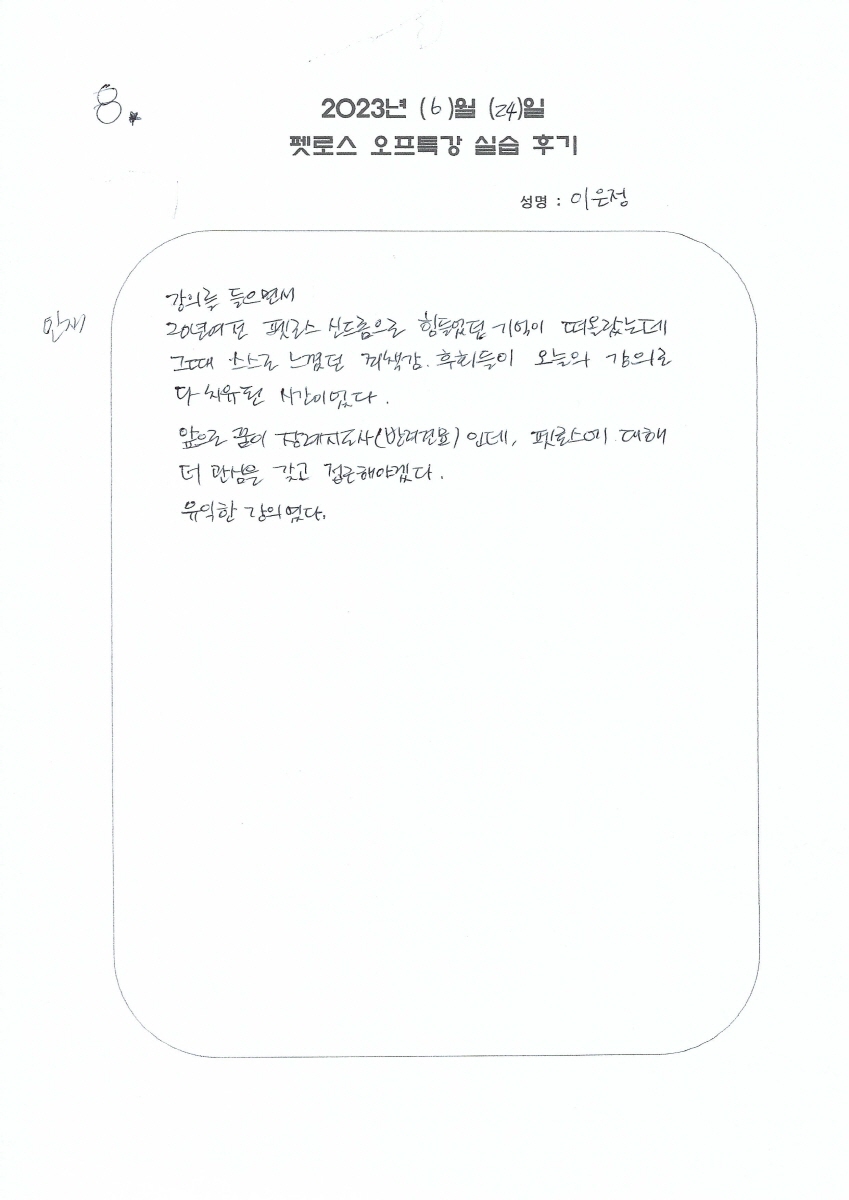 8.*
2023년 (6)월 (24)일
펫로스 오프특강 실습 후기
성명 : 이은정
민재
강의를 들으면서
20년여전 펫로스 신드롬으로 힘들었던 기억이 떠올랐는데
그때 스스로 느꼈던 죄책감. 후회들이 오늘의 강의로
다 치유된 시간이었다.
앞으로 꿈이 장례지도사(반려견묘) 인데, 펫로스에 대해
더 관심을 갖고 접근해야겠다.
유익한 강의였다.